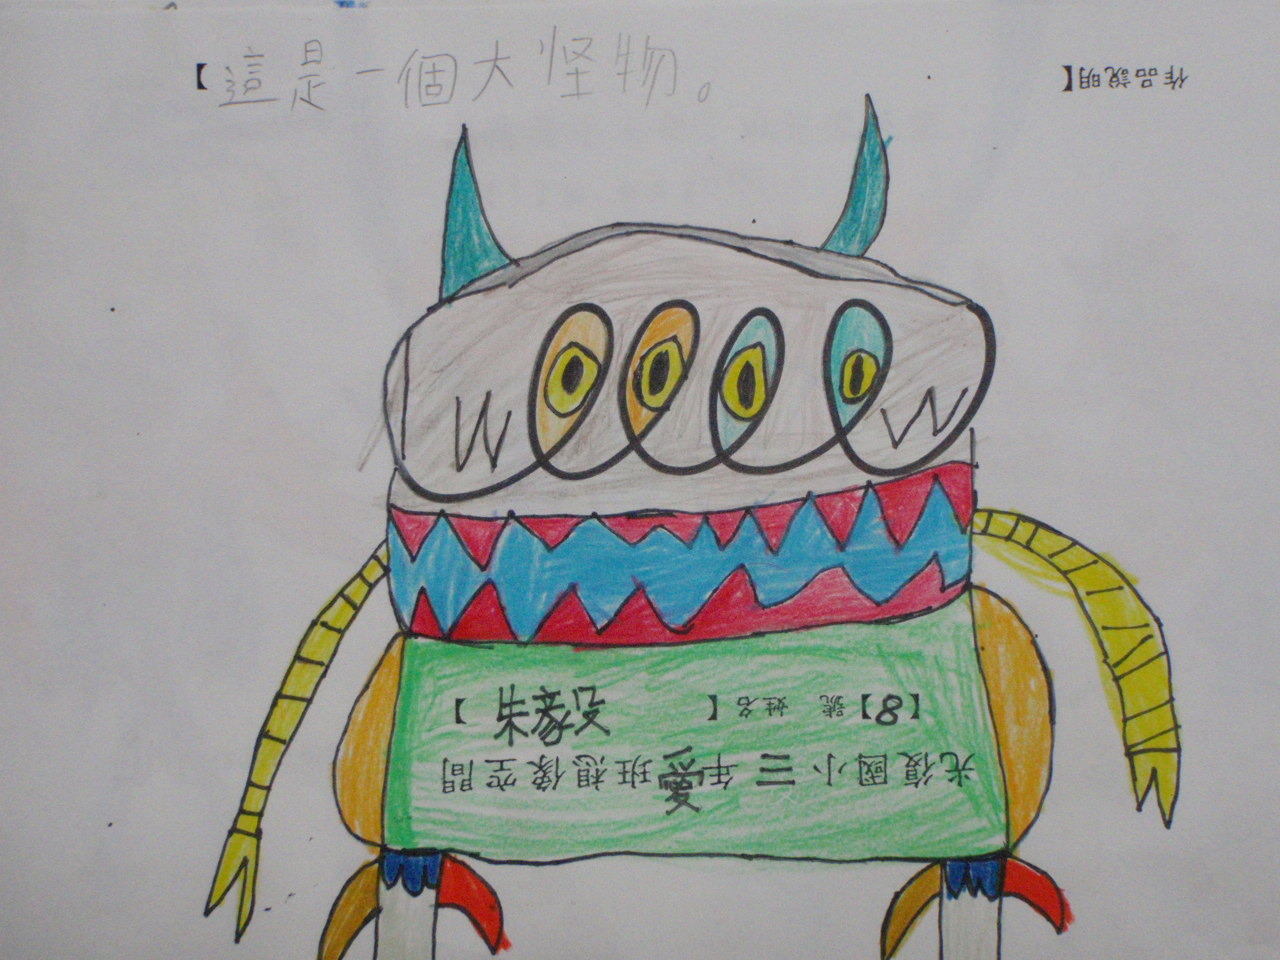 光復國小三年愛班想像空間
【8】號 姓名【朱毅】
作品說明【這是一個大怪物。】
W W